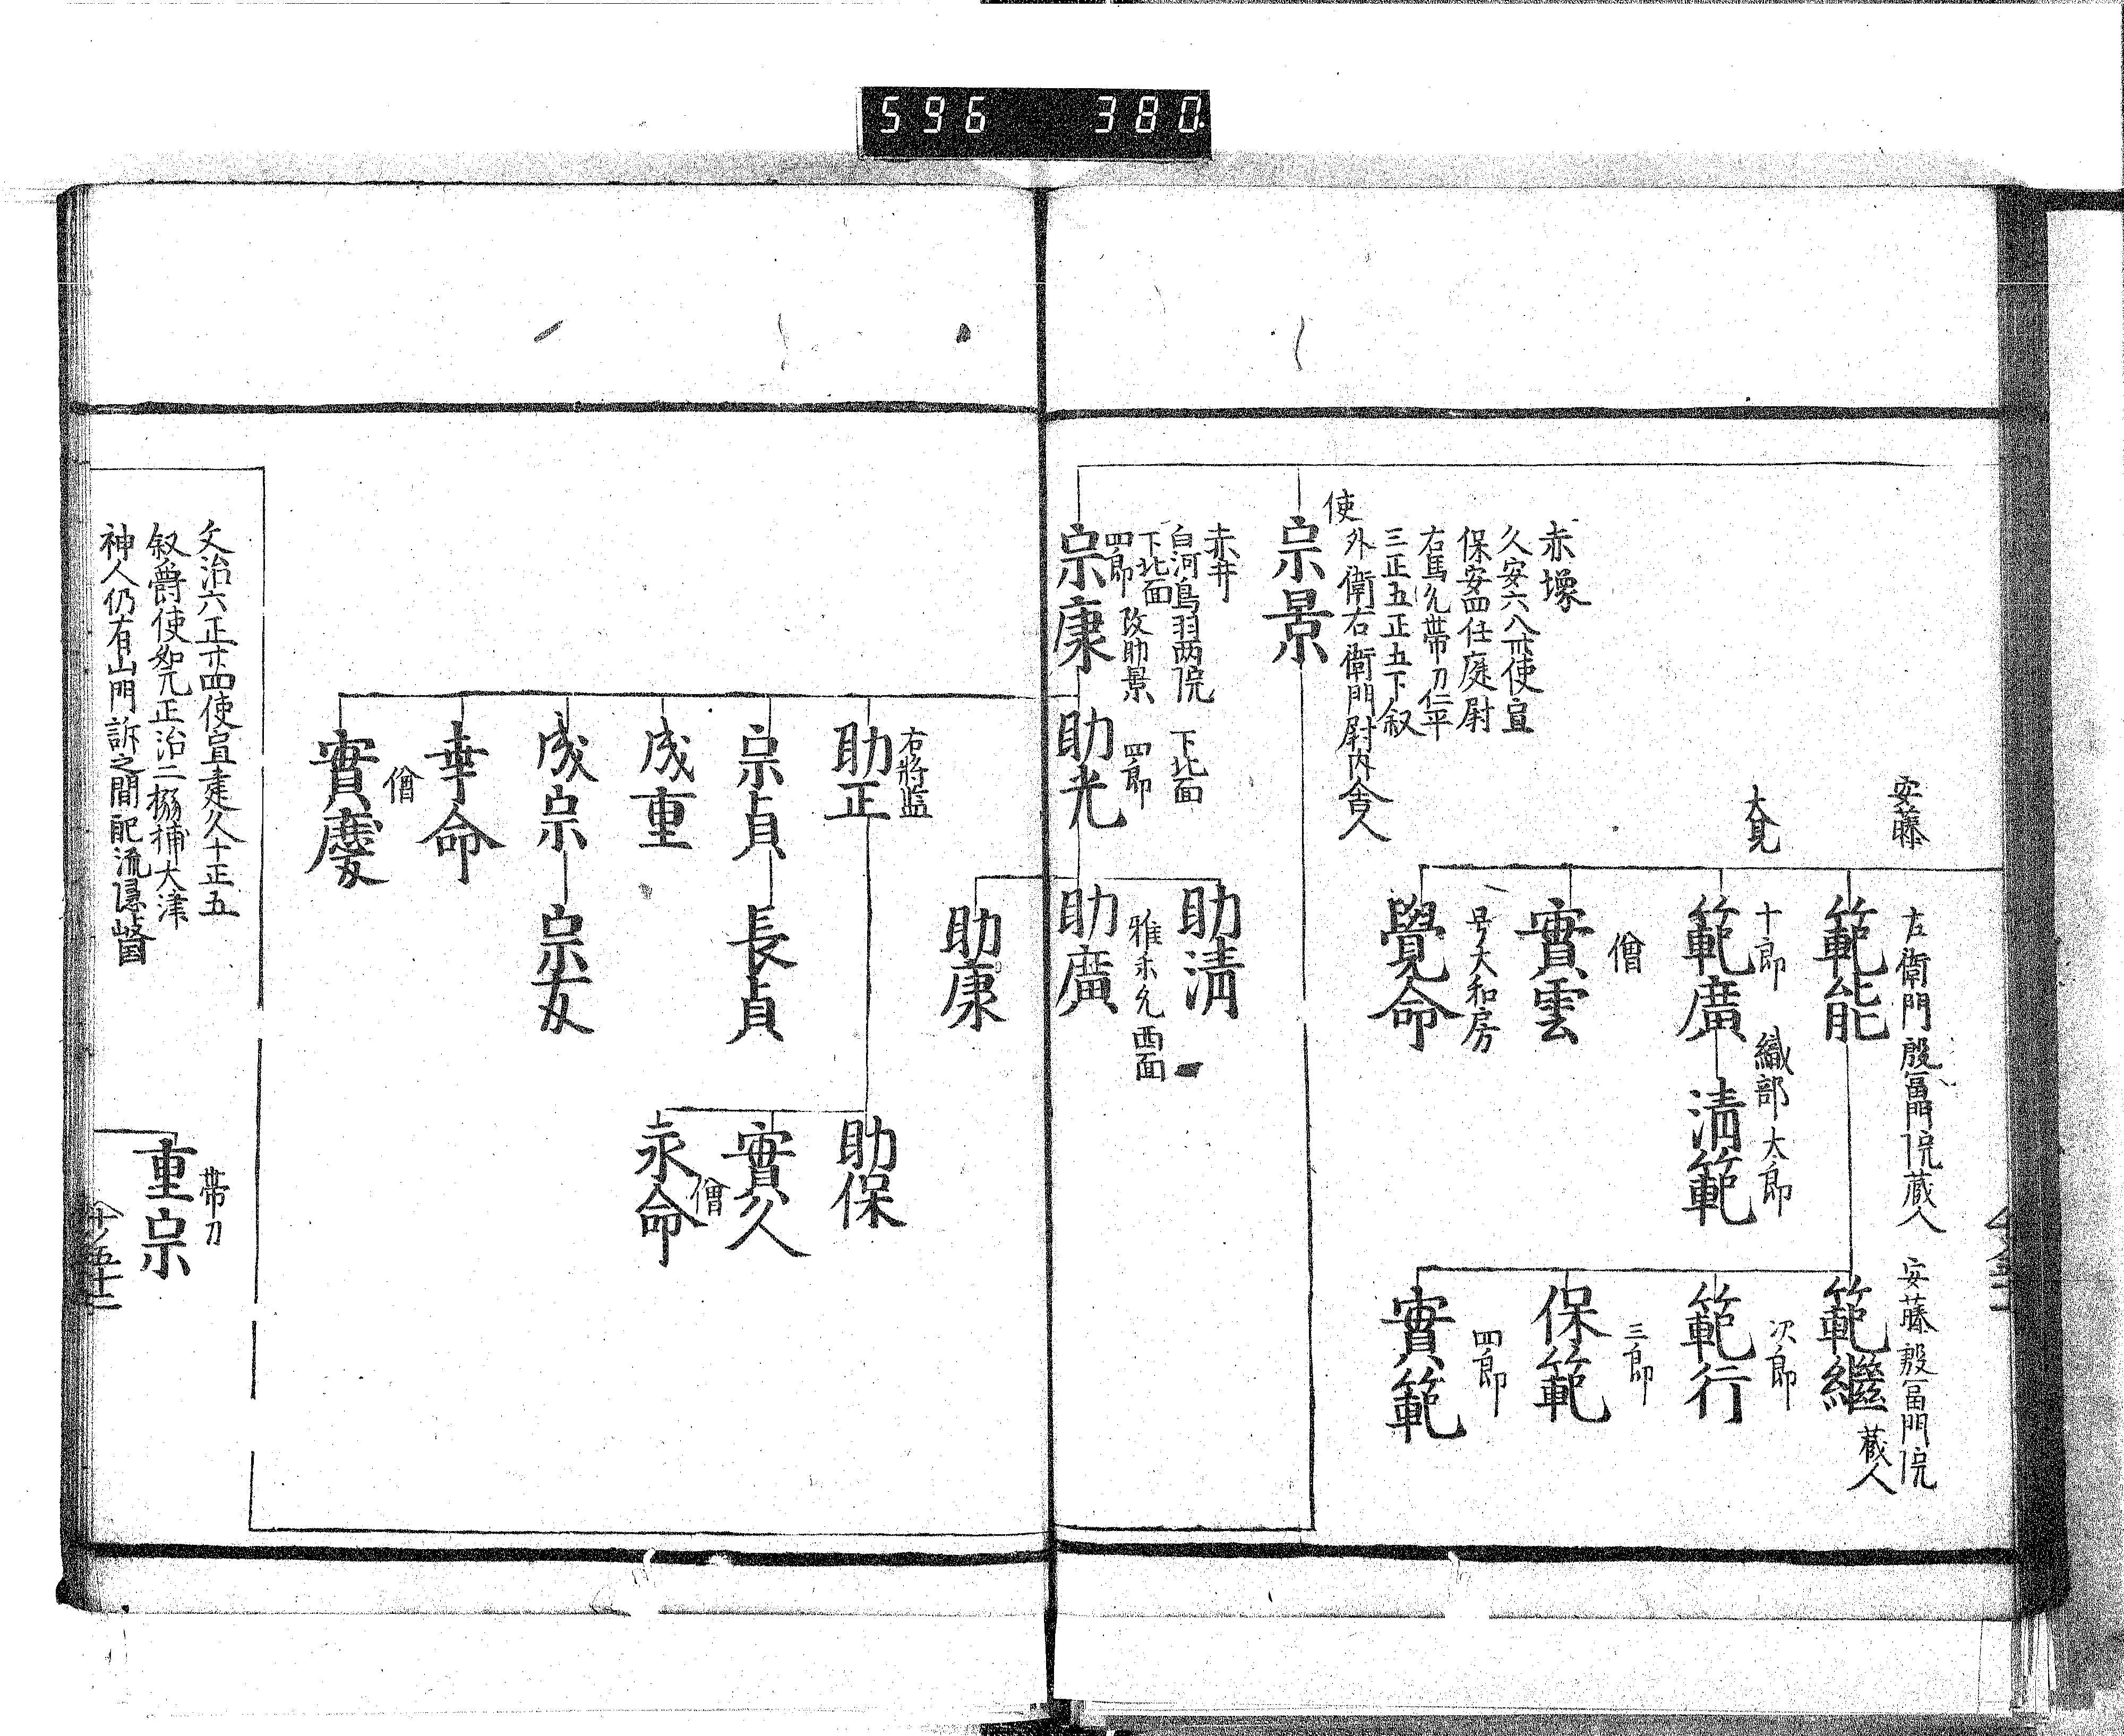 596 380
安藤
左衛門殷富門院蔵人
範能
安藤殷富門院
蔵人
範繼
次郎
範行
三郎
保範
四郎
實範
大見
十郎
範廣
織部太郎
清範
僧
實雲
号大和房
覺命
赤塚
久安六八廿使宣
保安四任廷尉
右馬允帯刀仁平
三正五正五下叙
外衛右衛門尉内舎人
使
宗景
赤井
白河鳥羽両院
下北面
四郎 改助景
宗康
下北面
四郎
助光
助清
雅楽允西面
助廣
助康
右將監
助正
助保
實久
僧
永命
宗貞
長貞
成重
成宗
宗友
幸命
僧
實慶
文治六正廿四使宣建久十正五
叙爵使如元正治二
補大津
神人仍有山門訴之間配流隠岐国
帯刀
重宗